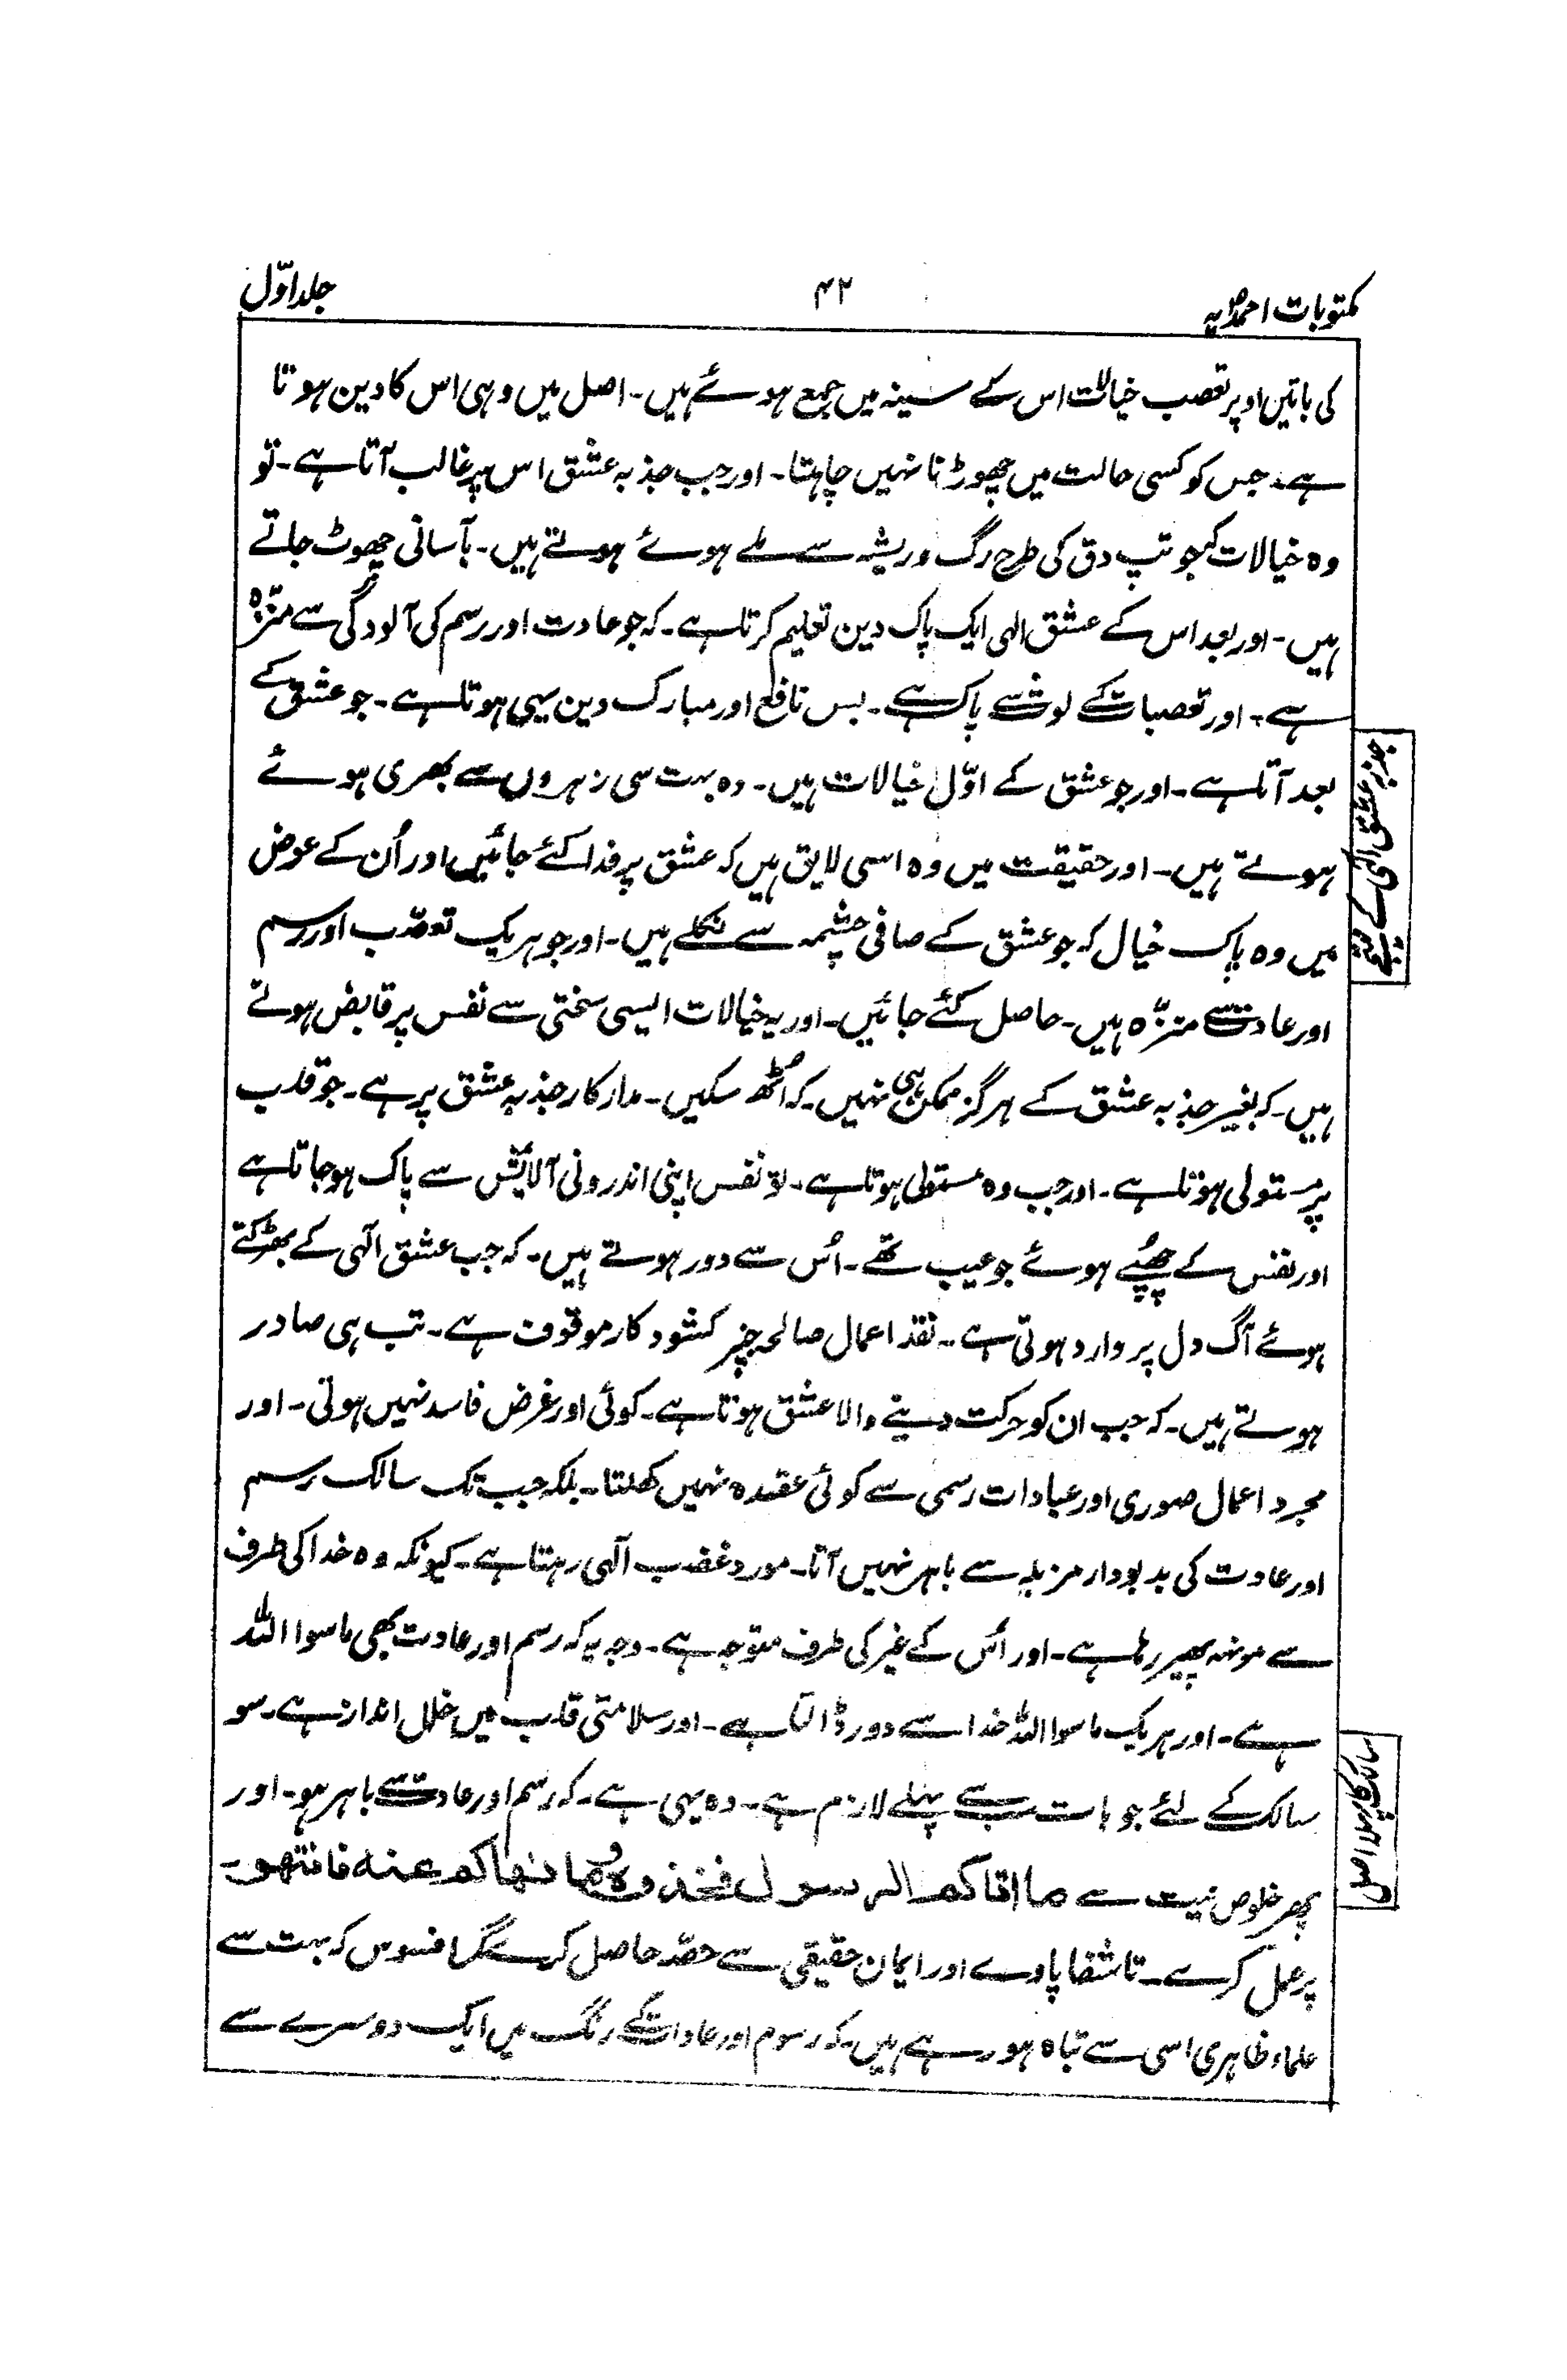 مکتوبات احمدیہ
۴۲
جلد اوّل
کی باتیں اور پر تعصب خیالات اس کے سینہ میں جمع ہوئے ہیں۔ اصل میں وہی اس کا دین ہوتا
ہے۔ جس کو کسی حالت میں چھوڑنا نہیں چاہتا۔ اور جب جذبہ عشق اس پر غالب آتا ہے۔ تو
وہ خیالات کہ جو تپ دق کی طرح رگ و ریشہ سے ملے ہوئے ہوتے ہیں۔ بآسانی چھوٹ جاتے
ہیں۔ اور بعد اس کے عشق الٰہی ایک پاک دین تعلیم کرتا ہے۔ کہ جو عادت اور رسم کی آلودگی سے منزّہ
ہے۔ اور تعصبات کے لوث سے پاک ہے۔ بس نافع اور مبارک دین یہی ہوتا ہے۔ جو عشق کے
بعد آتا ہے۔ اور جو عشق کے اوّل خیالات ہیں۔ وہ بہت سی زہروں سے بھری ہوئے
ہوتے ہیں۔ اور حقیقت میں وہ اسی لایق ہیں کہ عشق پر فدا کئے جائیں اور اُن کے عوض
میں وہ پاک خیال کہ جو عشق کے صافی چشمہ سے نکلے ہیں۔ اور جو ہریک تعصّب اور رسم
اور عادت سے منزّہ ہیں۔ حاصل کئے جائیں۔ اور یہ خیالات ایسی سختی سے نفس پر قابض ہوتے
ہیں۔ کہ بغیر جذبہ عشق کے ہرگز ممکن ہی نہیں۔ کہ اُٹھ سکیں۔ مدار کار جذبہ عشق پر ہے۔ جو قلب
پر مستولی ہوتا ہے۔ اور جب وہ مستولی ہوتا ہے۔ تو نفس اپنی اندرونی آلایٔش سے پاک ہو جاتا ہے
اور نفس کے چھُپے ہوئے جو عیب تھے۔ اُس سے دور ہوتے ہیں۔ کہ جب عشق الٓہی کے بھڑکتے
ہوئے آگ دل پر وارد ہوتی ہے۔ نقد اعمال صالحہ جنپر کشود کار موقوف ہے۔ تب ہی صادر
ہوتے ہیں۔ کہ جب ان کو حرکت دینے والا عشق ہوتا ہے۔ کوئی اور غرض فاسد نہیں ہوتی۔ اور
مجرد اعمال صوری اور عبادات رسمی سے کوئی عقدہ نہیں کھلتا۔ بلکہ جب تک سالک رسم
اور عادت کی بدبودار مزبلہ سے باہر نہیں آتا۔ مورد غضب الٓہی رہتا ہے۔ کیونکہ وہ خدا کی طرف
سے مونہہ پھیر رہا ہے۔ اور اُس کے غیر کی طرف متوجہ ہے۔ وجہ یہ کہ رسم اور عادت بھی ماسوا اللہ
ہے۔ اور ہریک ماسوا اللہ خدا سے دور ڈالتا ہے۔ اور سلامتی قلب میں خلل انداز ہے۔ سو
سالک کے لئے جو بات سب سے پہلے لازم ہے۔ وہ یہی ہے۔ کہ رسم اور عادت سے باہر ہو۔ اور
پھر خلوص نیت سے ما اتاکم الرسول فخذوہ وما نھاکم عنہ فانتھو۔
پر عمل کرے۔ تا شفا پاوے اور ایمان حقیقی سے حصّہ حاصل کرے مگر افسوس کہ بہت سے
علماء ظاہری اسی سے تباہ ہو رہے ہیں۔ کہ رسوم اور عادات کے رنگ میں ایک دوسرے سے
سالک کا پہلا اصول